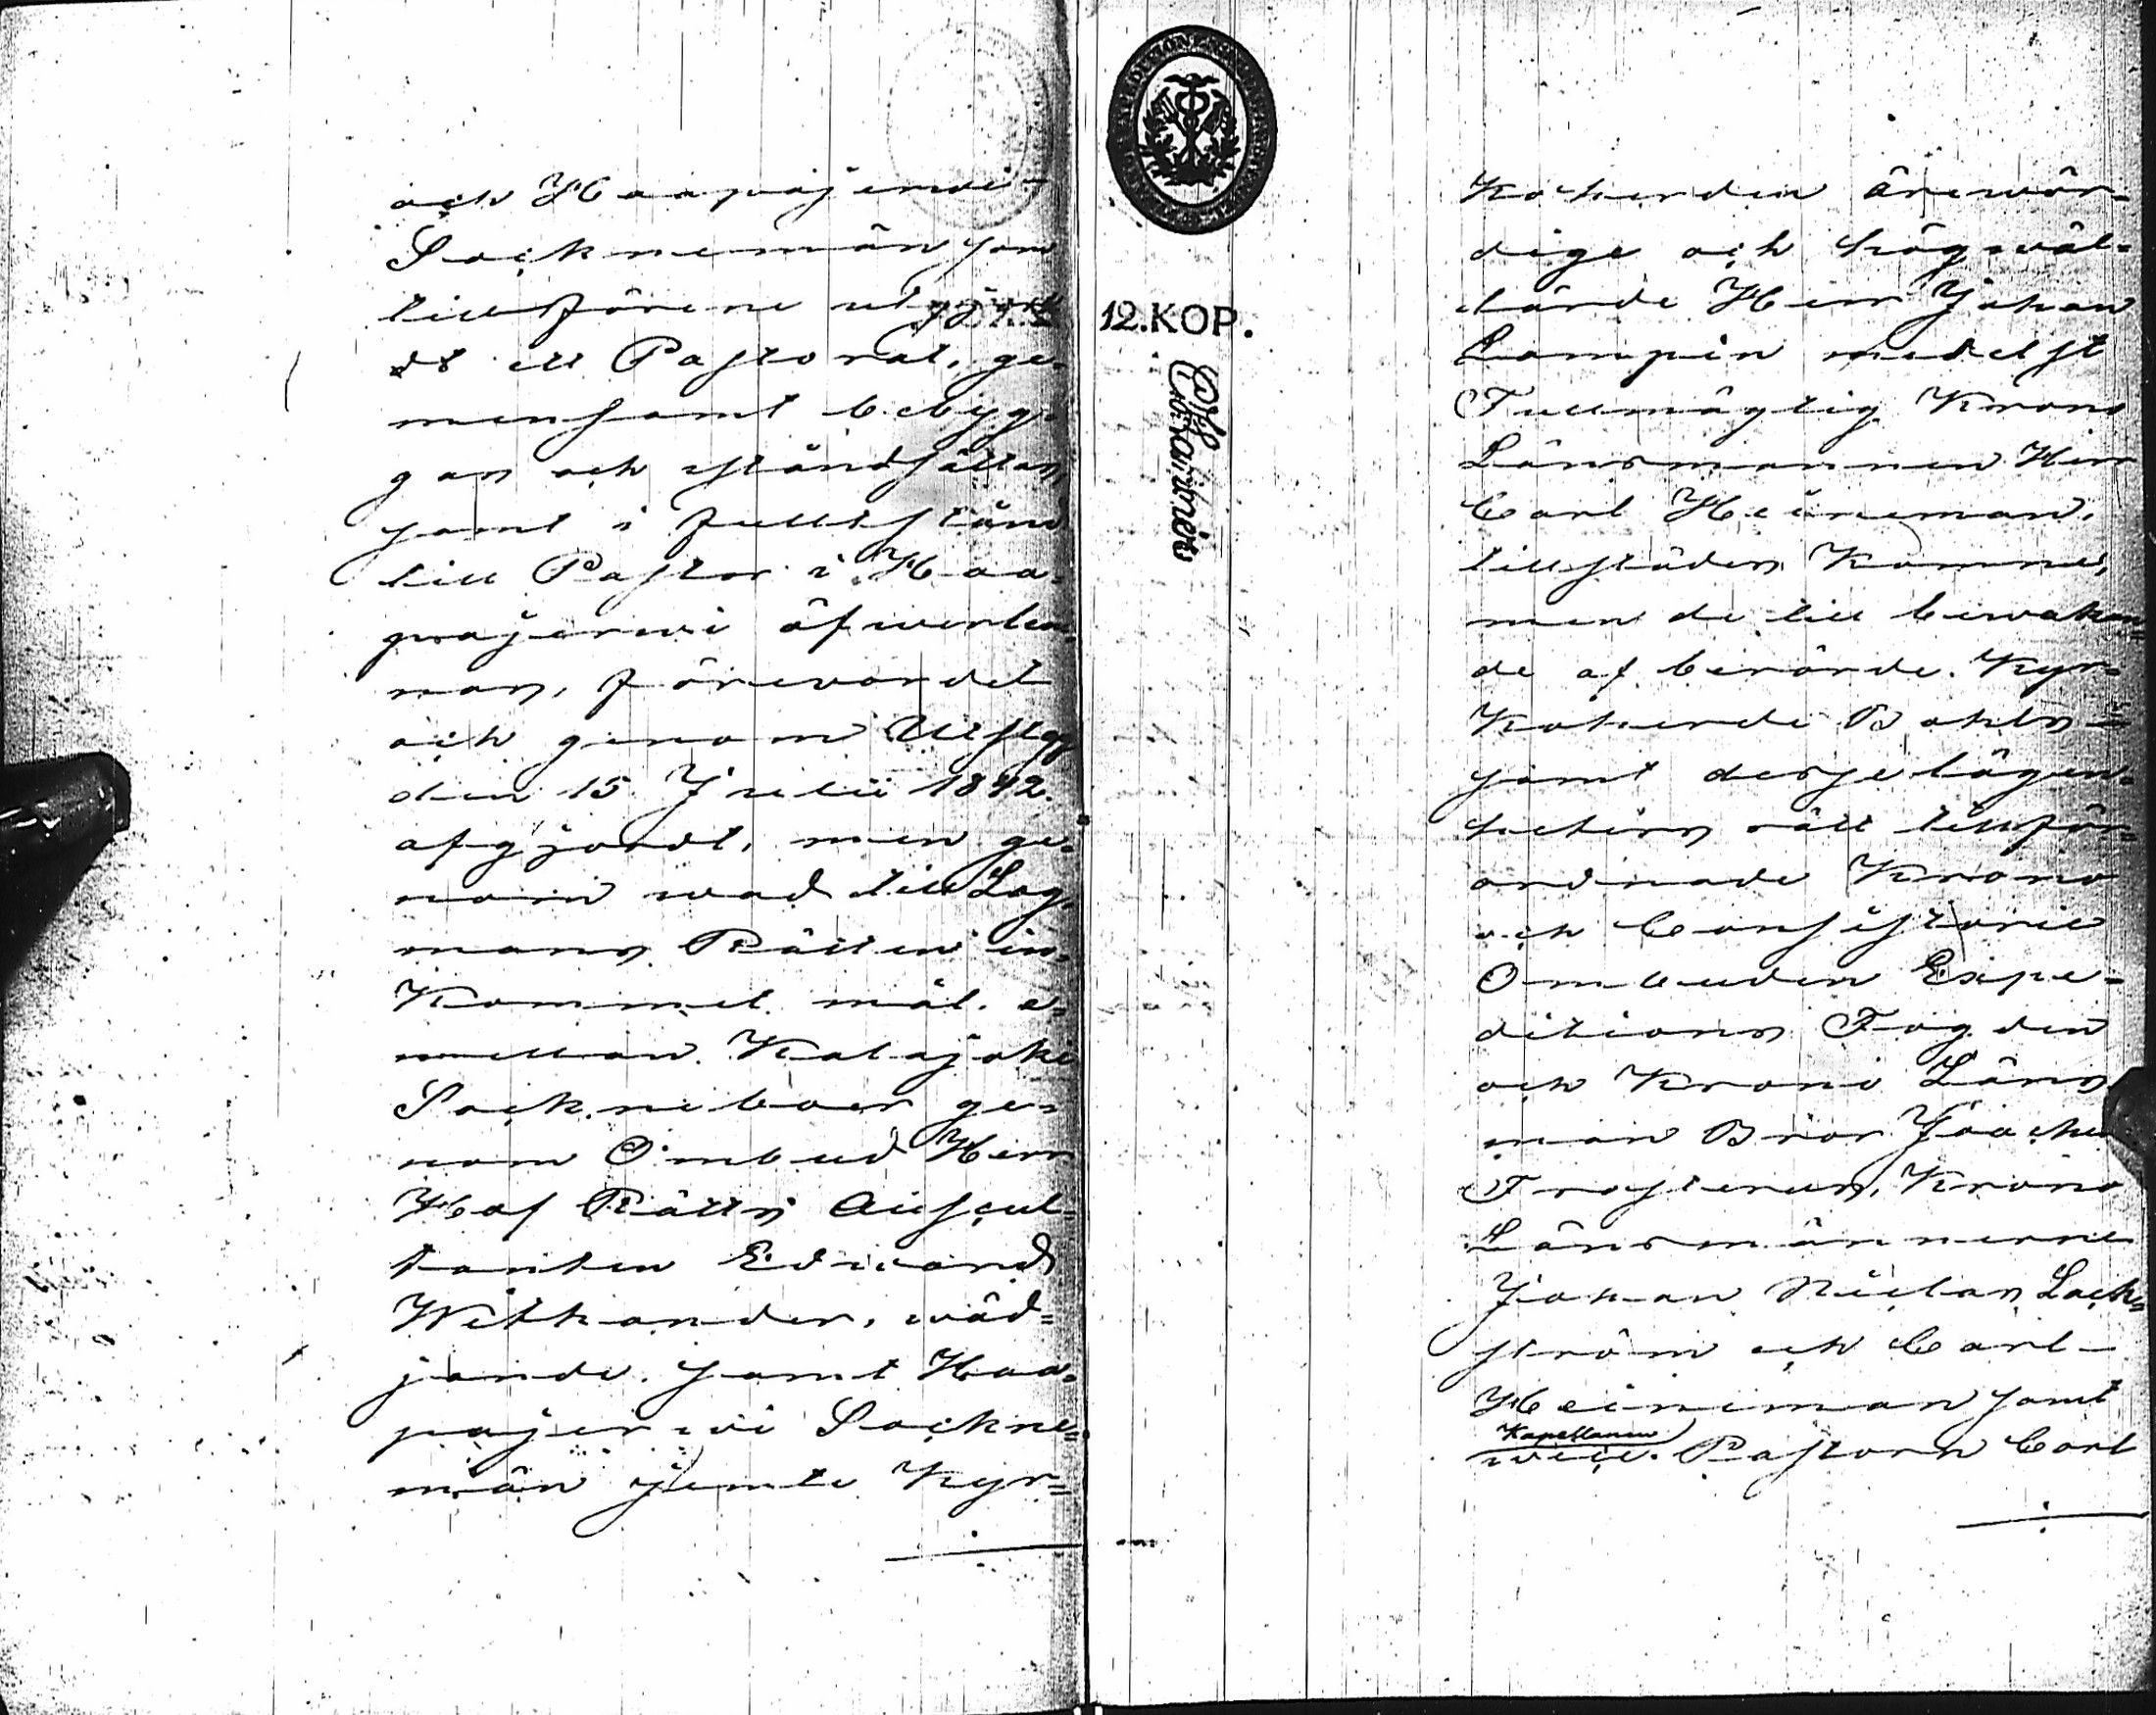 och Haapajerwi
Socknemän som
tillförene utgjor-
dt ett Pastorat, ge-
mensamt bebyg-
gas och iståndsättas
samt i fullt stånd
till Pastor i Haa-
pajerwi öfwerlem-
nas, förewardet
och genom Utslag
den 15 Julii 1842.
afgjordt, men ge-
nom wad till Lag-
mans Rätten in-
kommet mål. e-
mellan Kalajoki
Sockneboer ge-
nom Ombud Herr
Hof Rätts Auscul-
tanten Edvard
Wethander, wäd-
jande. samt Haa-
pajerwi Sockne-
män jemte Kyr-
12.KOP.
Koherden ärewör-
dige och högwäl-
lärde Herr Johan
Lampin medelst
Fullmägtig Krono
Länsmannen Herr
Carl Heineman,
tillstädes komne,
men de till bewakan-
de af berörde Kyr-
koherde Bohls
samt desse lägen-
heters rätt tillför-
ordnade Krono
och Consistorie
Ombuden Expe-
ditions Fogden
och Krono Läns
man Bror Joachim
Frosterus, Krono
Länsmännerne
Johan Niclas Lack-
ström och Carl
Heineman samt
Kapellanen
vice Pastorn Carl